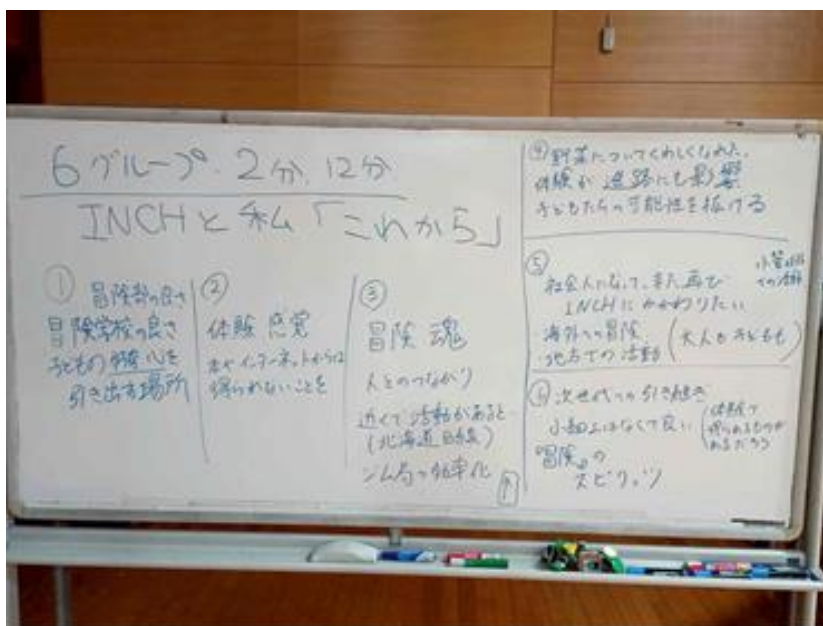 6グループ・2分、12分
INCHと私「これから」
①
冒険教の良さ
冒険学校の良さ
子どもの好奇心を
引き出す場所
②
体験 感覚
本やインターネットからは
得られないことを
③
冒険 魂
人とのつながり
近くで活動があると
(北海道
ジム局の効率化
④野菜についてくわしくなれた
体験が進路にも影響
子どもたちの可能性を拡げる
⑤
社会人になって、また再び
INCHにかかわりたい
海外への冒険
地方での活動
(大人も子どもも)
での活動
⑥次世代への引き継ぎ
はなくて良い
(体験で
得られるものが
あるだろう
『冒険』の
スピリッツ